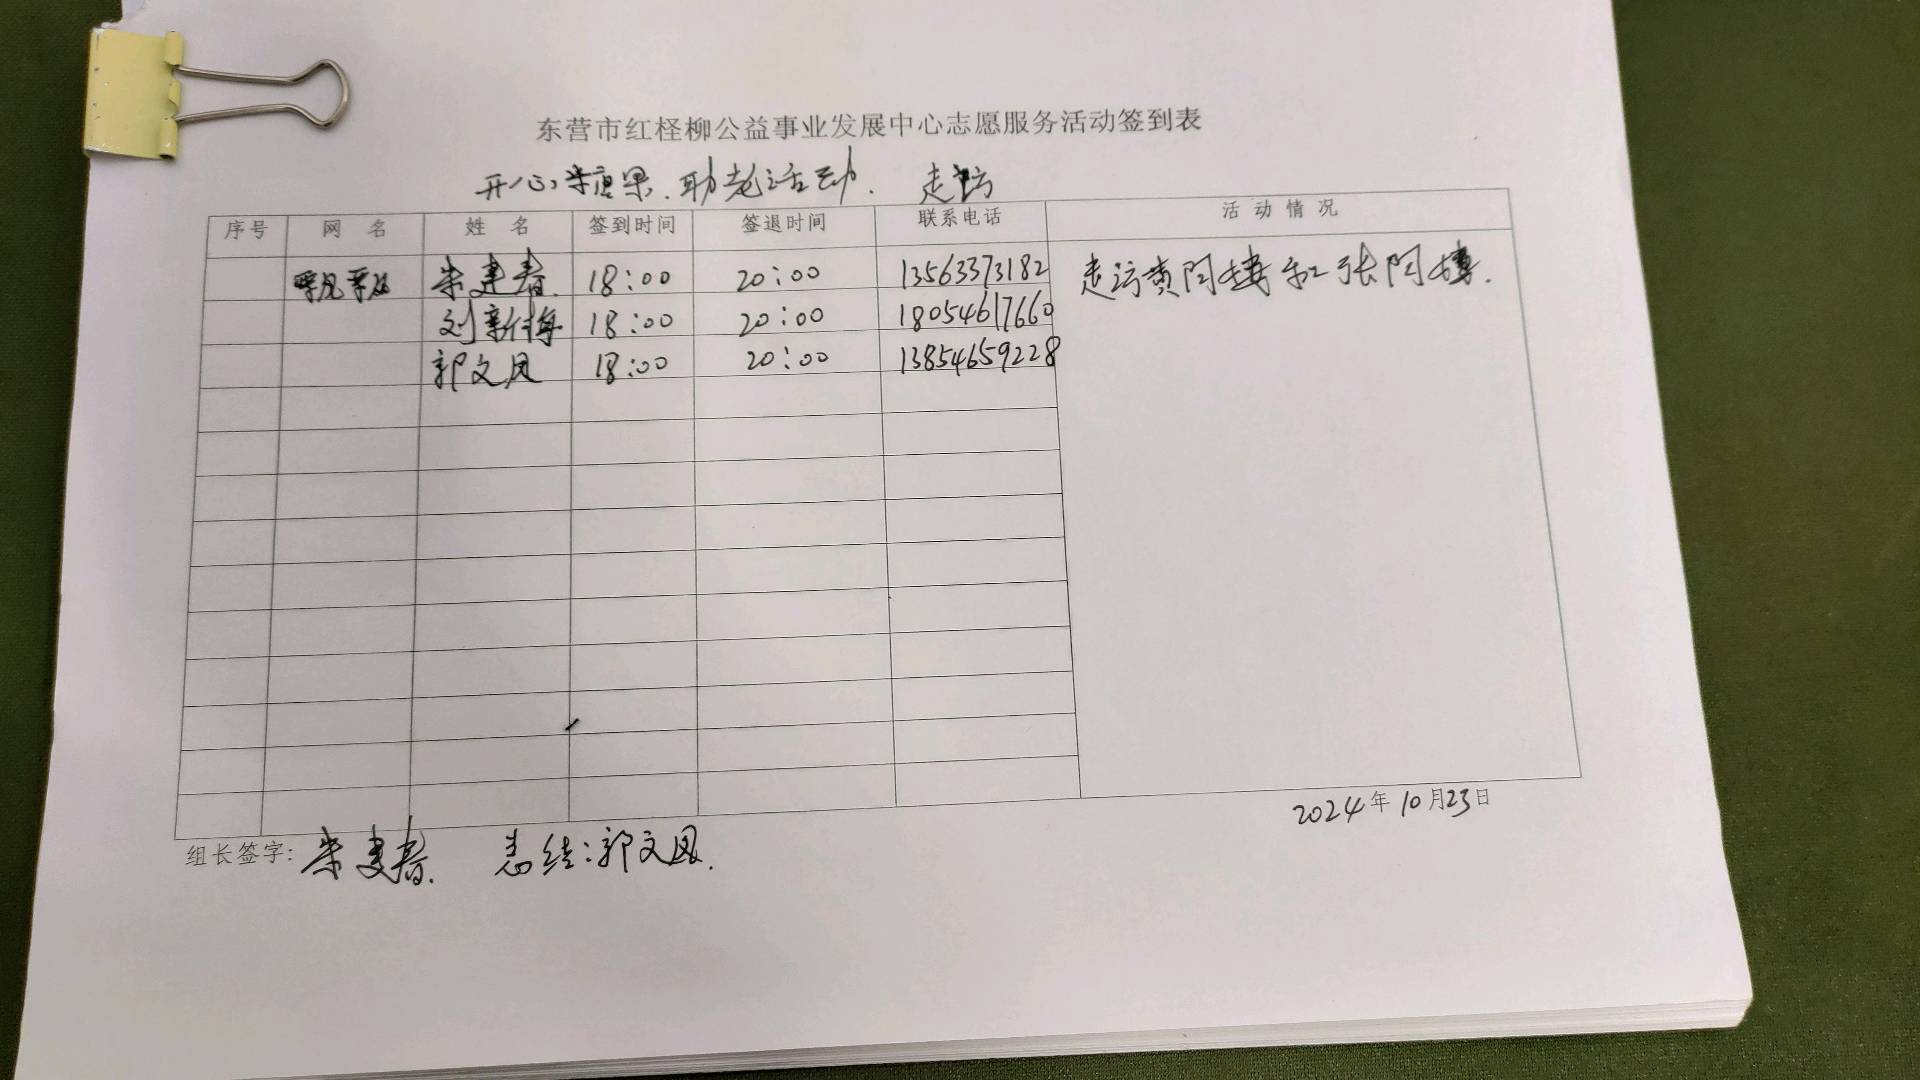 东营市红柽柳公益事业发展中心志愿服务活动签到表
开心坚果.助老活动. 走访
序号 网 名 姓 名 签到时间 签退时间 联系电话 活 动 情 况
朱建春. 18:00 20:00 13563373182 走访黄阿姨和张阿姨.
刘新梅 18:00 20:00 18054617660
郭文凤 18:00 20:00 13854659228
2024年10月23日
组长签字: 朱建春. 总结:郭文凤.